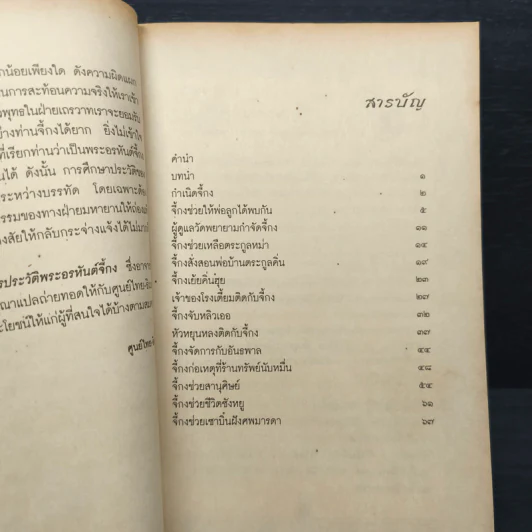 กน้อยเพียงใด ดังความผิดแผก
นการสะท้อนความจริงให้เราเข้า
วพุทธในฝ่ายเถรวาทเราจะยอมรับ
ย่างท่านจี้กงได้ยาก ยิ่งไม่เข้าใจ
ที่เรียกท่านว่าเป็นพระอรหันต์จี้กง
นได้ ดังนั้น การศึกษาประวัติของ
ระหว่างบรรทัด โดยเฉพาะ
รรมของทางฝ่ายมหายานให้ถ่อง
งสัยให้กลับกระจ่างแจ้งได้ไม่
ารประวัติพระอรหันต์จี้กง ซึ่งอาจาร
ณาแปลถ่ายทอดให้กับศูนย์ไทย-
ะโยชน์ให้แก่ผู้ที่สนใจได้บ้างตามสม
ศูนย์ไทย-
สารบัญ
คำนำ
บทนำ ๑
กำเนิดจี้กง ๒
จี้กงช่วยให้พ่อลูกได้พบกัน ๕
ผู้ดูแลวัดพยายามกำจัดจี้กง ๑๑
จี้กงช่วยเหลือตระกูลหม่า ๑๔
จี้กงสั่งสอนพ่อบ้านตระกูลคิ่น ๑๙
จี้กงเย้ยคิ่นฮุย ๒๓
เจ้าของโรงเตี้ยมติดกับจี้กง ๒๗
จี้กงจับหลิวเออ ๓๒
หัวหยุนหลงติดกับจี้กง ๓๗
จี้กงจัดการกับอันธพาล ๔๔
จี้กงก่อเหตุที่ร้านทรัพย์นับหมื่น ๔๘
จี้กงช่วยสานุศิษย์ ๕๔
จี้กงช่วยชีวิตซังหยู ๖๑
จี้กงช่วยเซาบิ๋นฝังศพมารดา ๖๗